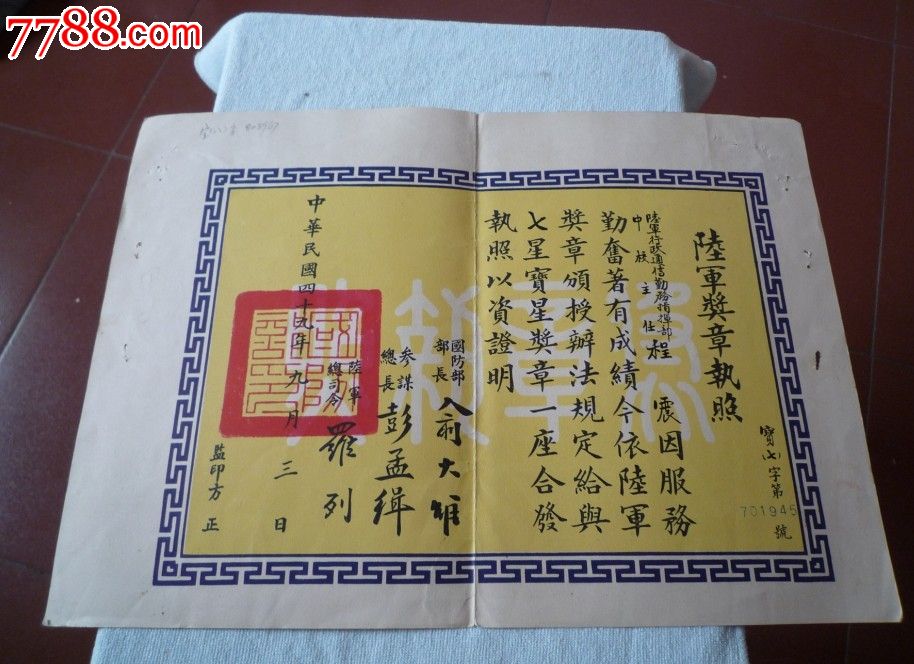 7788.com
陸軍獎章執照
寶(七)字第701945號
陸軍行政通信勤務指揮部
中校主任程震因服務
勤奮著有成績今依陸軍
獎章頒授辦法規定給與
七星寶星獎章一座合發
執照以資證明
國防部部長俞大維
參謀總長彭孟緝
陸軍總司令羅列
中華民國四十九年九月三日
監印方正